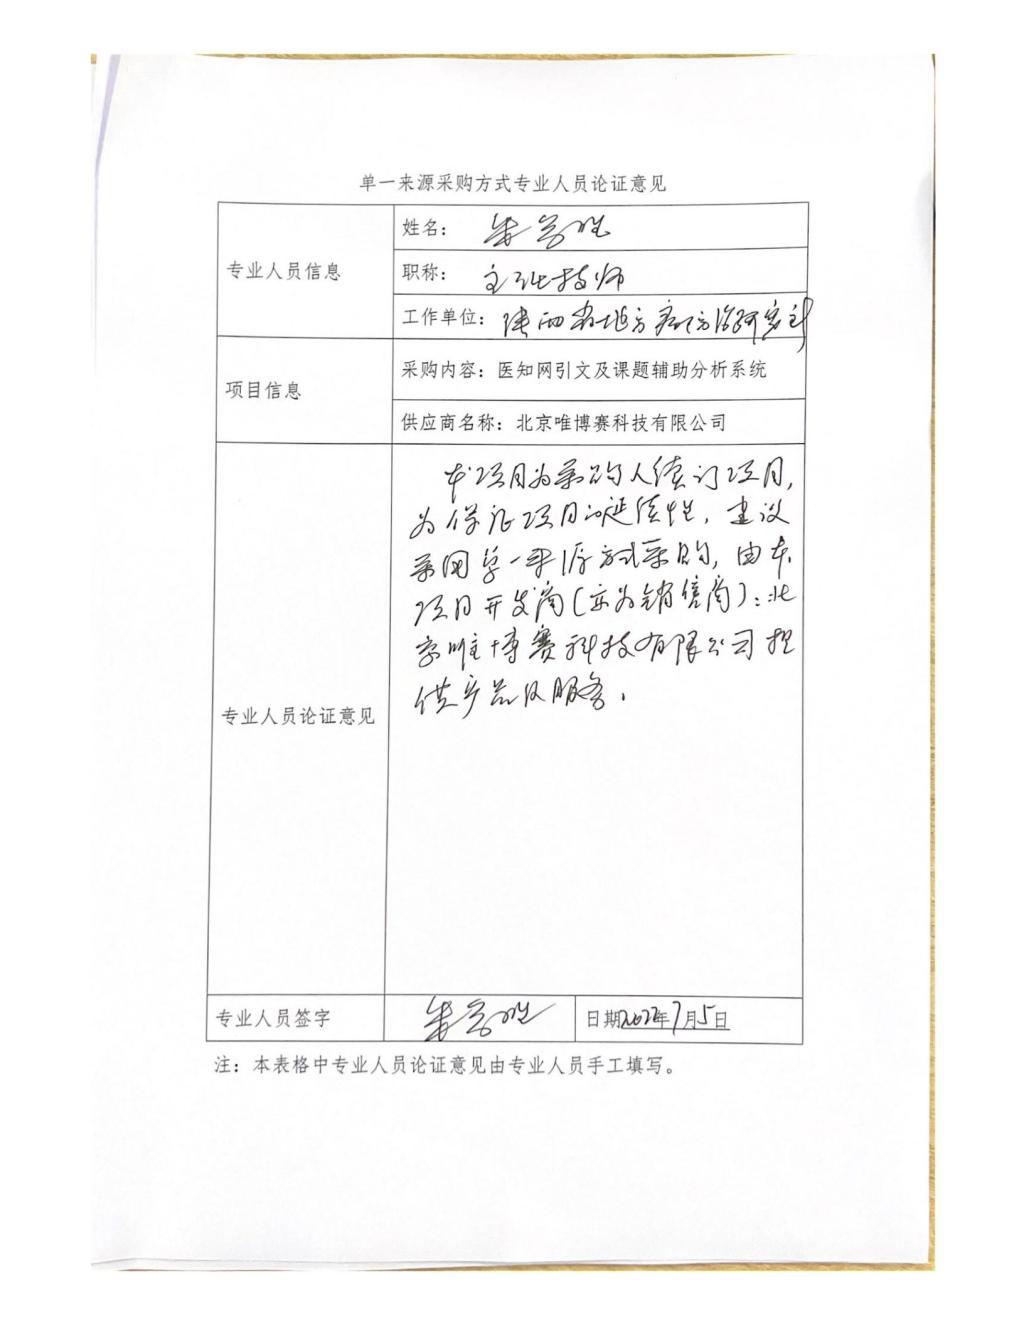 单一来源采购方式专业人员论证意见
专业人员信息
姓名：
职称：主任技师
工作单位：陕西省地方病防治研究所
项目信息
采购内容：医知网引文及课题辅助分析系统
供应商名称：北京唯博赛科技有限公司
专业人员论证意见
本项目为采购人续订项目，
为保证项目的延续性，建议
采用单一来源方式采购，由本
项目开发商（亦为销售商）：北
京唯博赛科技有限公司提
供产品及服务。
专业人员签字
日期2022年7月5日
注：本表格中专业人员论证意见由专业人员手工填写。